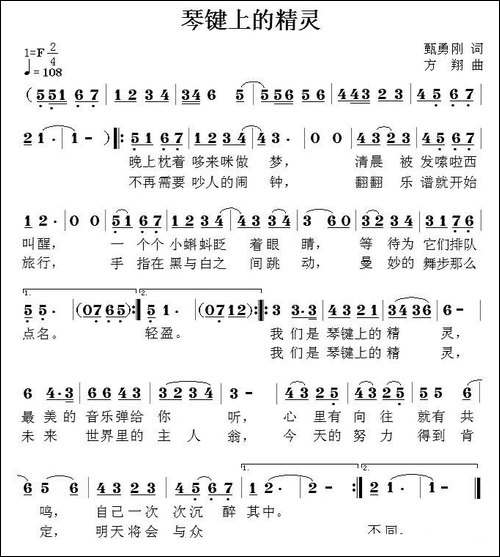 琴键上的精灵
1=F 2/4
♩=108
甄勇刚 词
方 翔 曲
(5 5 1 6 7 | 1 2 3 4 | 3 4 5 6 | 5 5 5 6 5 6 | 4 4 3 2 3 |
2 1 · | 1 - ) ‖: 5 1 6 7 | 1 2 3 4 | 4 3 · | 0 0 | 4 3 2 3 | 4 5 6 7 |
晚上枕着 哆来咪做 梦, 清晨 被 发嗦啦西
不再需要 吵人的闹 钟, 翻翻 乐 谱就开始
1 2 · | 0 0 | 5 1 6 7 | 1 2 3 4 | 5 6 5 4 | 3 6 0 | 3 2 3 4 | 3 3 1 7 6 |
叫醒, 一 个个 小蝌蚪眨 着眼 睛, 等 待为 它们排队
旅行, 手 指在 黑与白之 间跳 动, 曼 妙的 舞步那么
1. 5 5 · | (0 7 6 5) :‖ 2. 5 1 · | (0 7 1 2) :‖: 3 3 · 3 | 4 3 2 1 | 3 4 3 6 | 6 - |
点名。 轻盈。 我 们是 琴键上的 精 灵,
我 们是 琴键上的 精 灵,
6 4 · 3 | 6 6 4 3 | 3 2 3 4 | 3 - | 4 3 2 5 | 4 3 2 5 | 5 5 6 |
最 美的 音乐弹给 你 听, 心 里有 向 往 就有 共
未来 世界里的 主 人 翁, 今 天的 努 力 得到 肯
6 5 6 | 4 4 4 3 | 2 3 4 5 | 1. 1 2 · | 2 · 3 · :‖ 2. 2 1 · | 1 - ‖
鸣, 自己一次 次沉 醉 其中。
定, 明天将会 与众 不同。